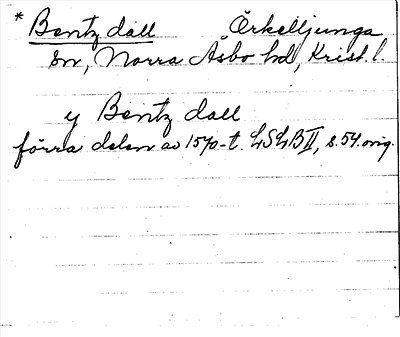 * Bentz dall Örkelljunga
sn, Norra Åsbo hd, Krist. l.
y Bentz dall
förra delen av 1570-t. LSLB II, s. 54. orig.